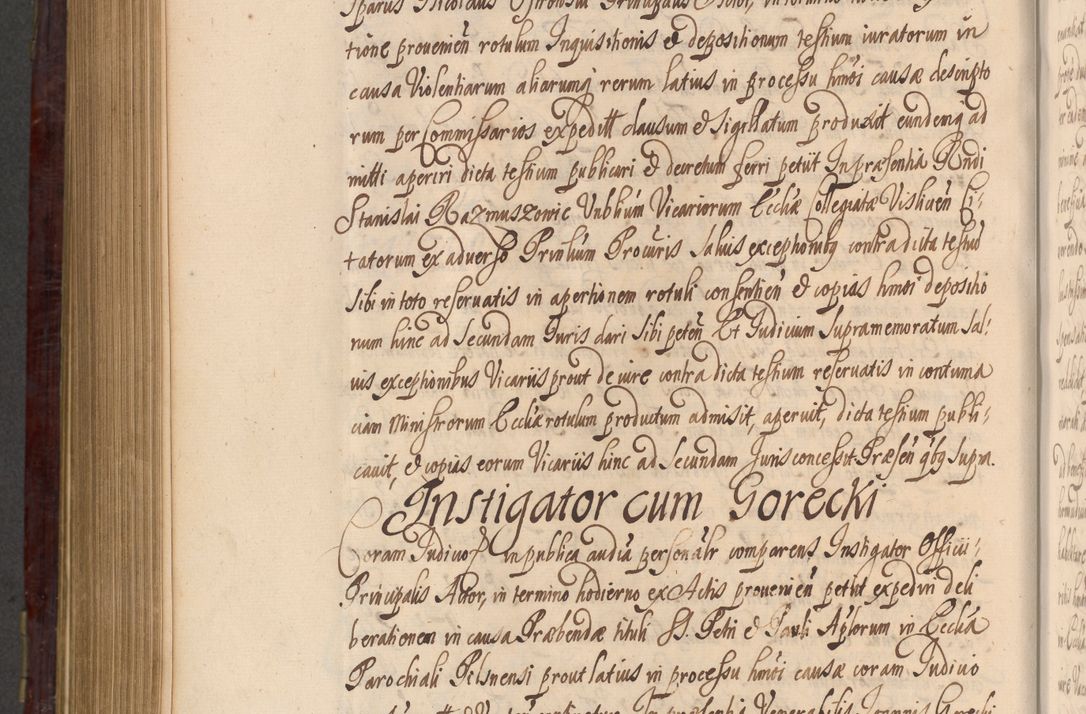 tione provenień rotulum Inquisitionis & depositionum testium iuratorum in
causa Violentiarum aliarumq rerum latius in processu hmōi causæ descripto
rum per Commissarios expeditt clausum & sigillatum produxit eundemq ad
mitti aperiri dicta testium publicari & decretum ferri petiit In præsentia Rndi
Stanislai Razmuszowic Vnblium Vicariorum Eccliæ Collegiatæ Visliceń Ci-
tatorum ex adverso Prinlium Procuris salvis exceptionibq contra dicta testiu
sibi in toto reservatis in apertionem rotuli consentień & copias hmōi depositio
num hinc ad secundam Iuris dari sibi peteń Et Iudicium supramemoratum sal-
vis exceptionibus Vicariis prout de iure contra dicta testium reservatis in contuma
ciam Ministrorum Eccliæ rotulum productum admisit, aperuit, dicta testium publi-
cavit, & copias eorum Vicariis hinc ad secundam Iuris concessit Præseń qbq supra.
Instigator cum Gorecki
Coram Iudicio in publica audia personalr comparens Instigator Officii-
Principalis Actor, in termino hodierno ex Actis provenień petiit expediri deli
berationem in causa Præbendæ tituli SS. Petri & Pauli Aplorum in Ecclia
Parochiali Pilsnensi prout latius in processu hmōi causæ coram Iudicio